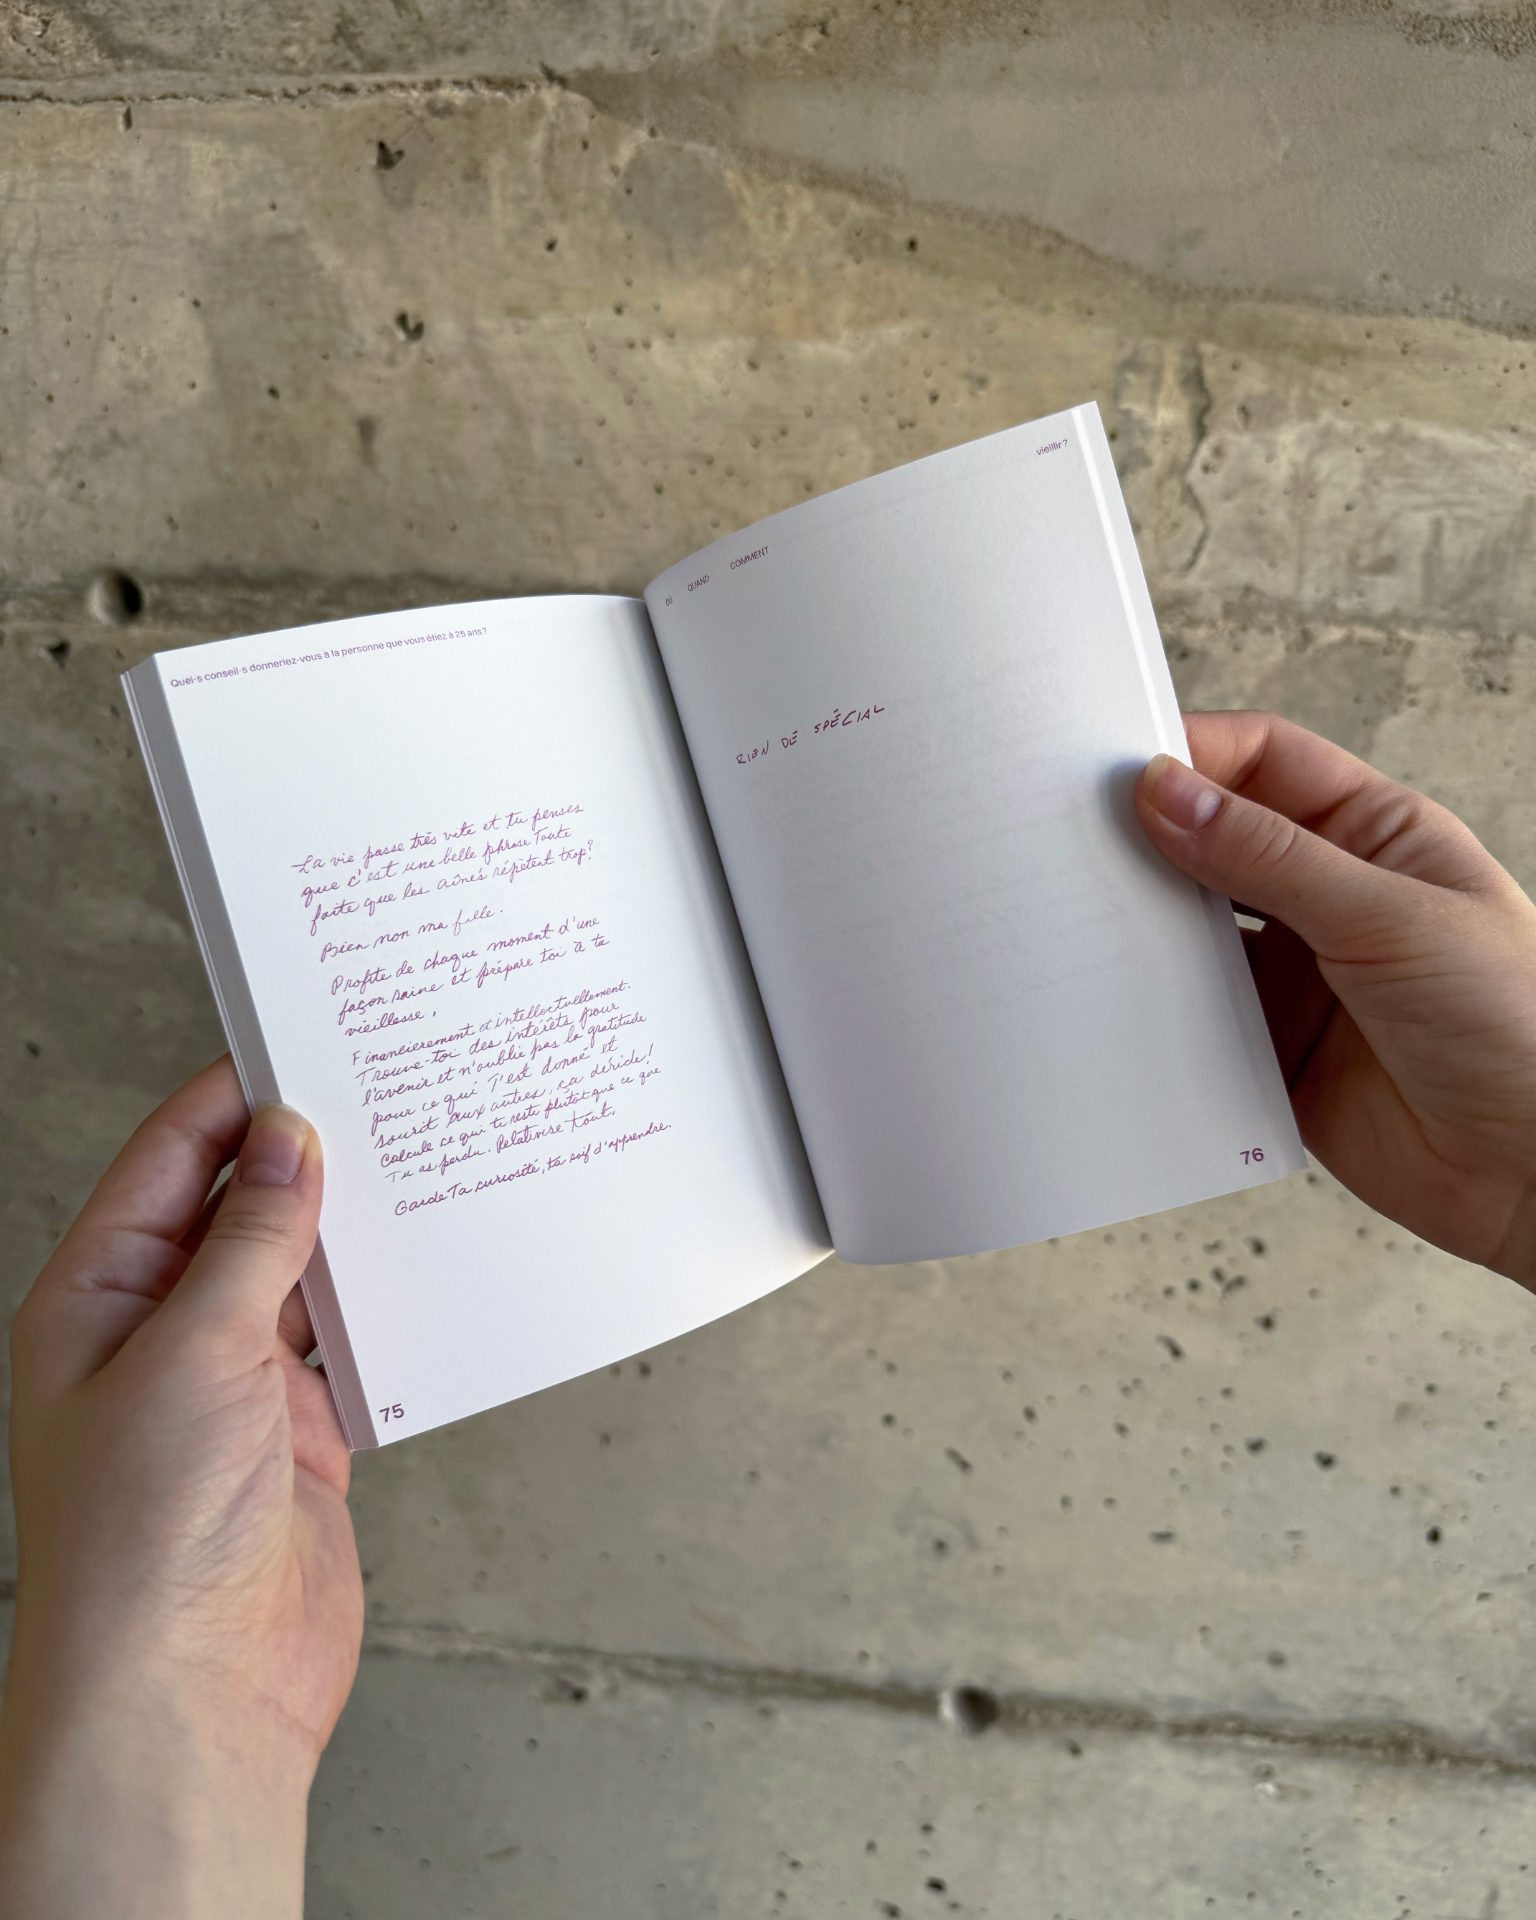 Quel·s conseil·s donneriez-vous à la personne que vous étiez à 25 ans?
La vie passe très vite et tu penses
que c'est une belle phrase Toute
faite que les aînés répètent trop?
Bien non ma fille.
Profite de chaque moment d'une
façon saine et prépare toi à ta
vieillesse.
Financièrement et intellectuellement.
Trouve-toi des intérêts pour
l'avenir et n'oublie pas la gratitude
pour ce qui T'est donné et
sourit aux autres, ça déride!
Calcule ce qui te reste plutôt que ce que
Tu as perdu. Relativise Tout.
Garde Ta curiosité, ta soif d'apprendre.
75
OÙ QUAND COMMENT vieillir?
RIEN DÉ SPÉCIAL
76